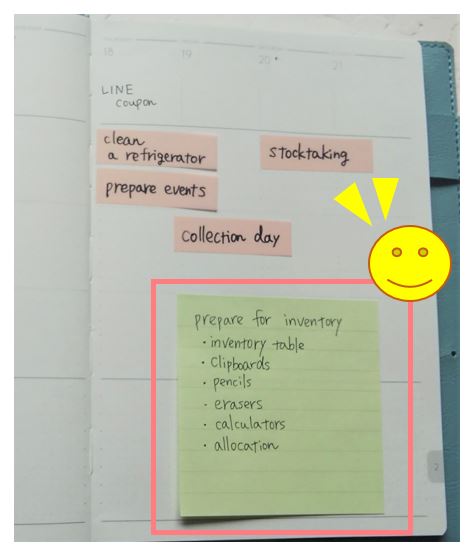 18 19 20 21
LINE
coupon
clean
a refrigerator
stocktaking
prepare events
collection day
prepare for inventory
・inventory table
・Clipboards
・pencils
・erasers
・calculators
・allocation
2